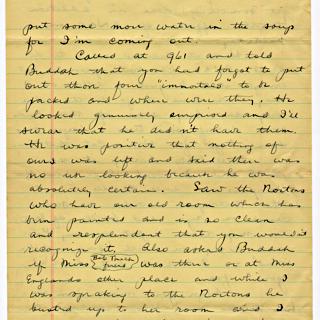 put some more water in the soup
for I'm coming out.
Called at 961 and told
Buddah that you had forgot to put
out those four "immortals" to be
packed and where were they. He
looked genuinely surprised and I'll
swear that he didn't have them.
He was positive that nothing of
ours was left and said there was
no use looking because he was
absolutely certain. Saw the Nortons
who have our old room which has
been painted and is so clean
and resplendent that you wouldn't
recognize it. Also asked Buddah
if Miss was there or at Miss
Englands other place and while I
was speaking to the Nortons he
busted up to her room and I